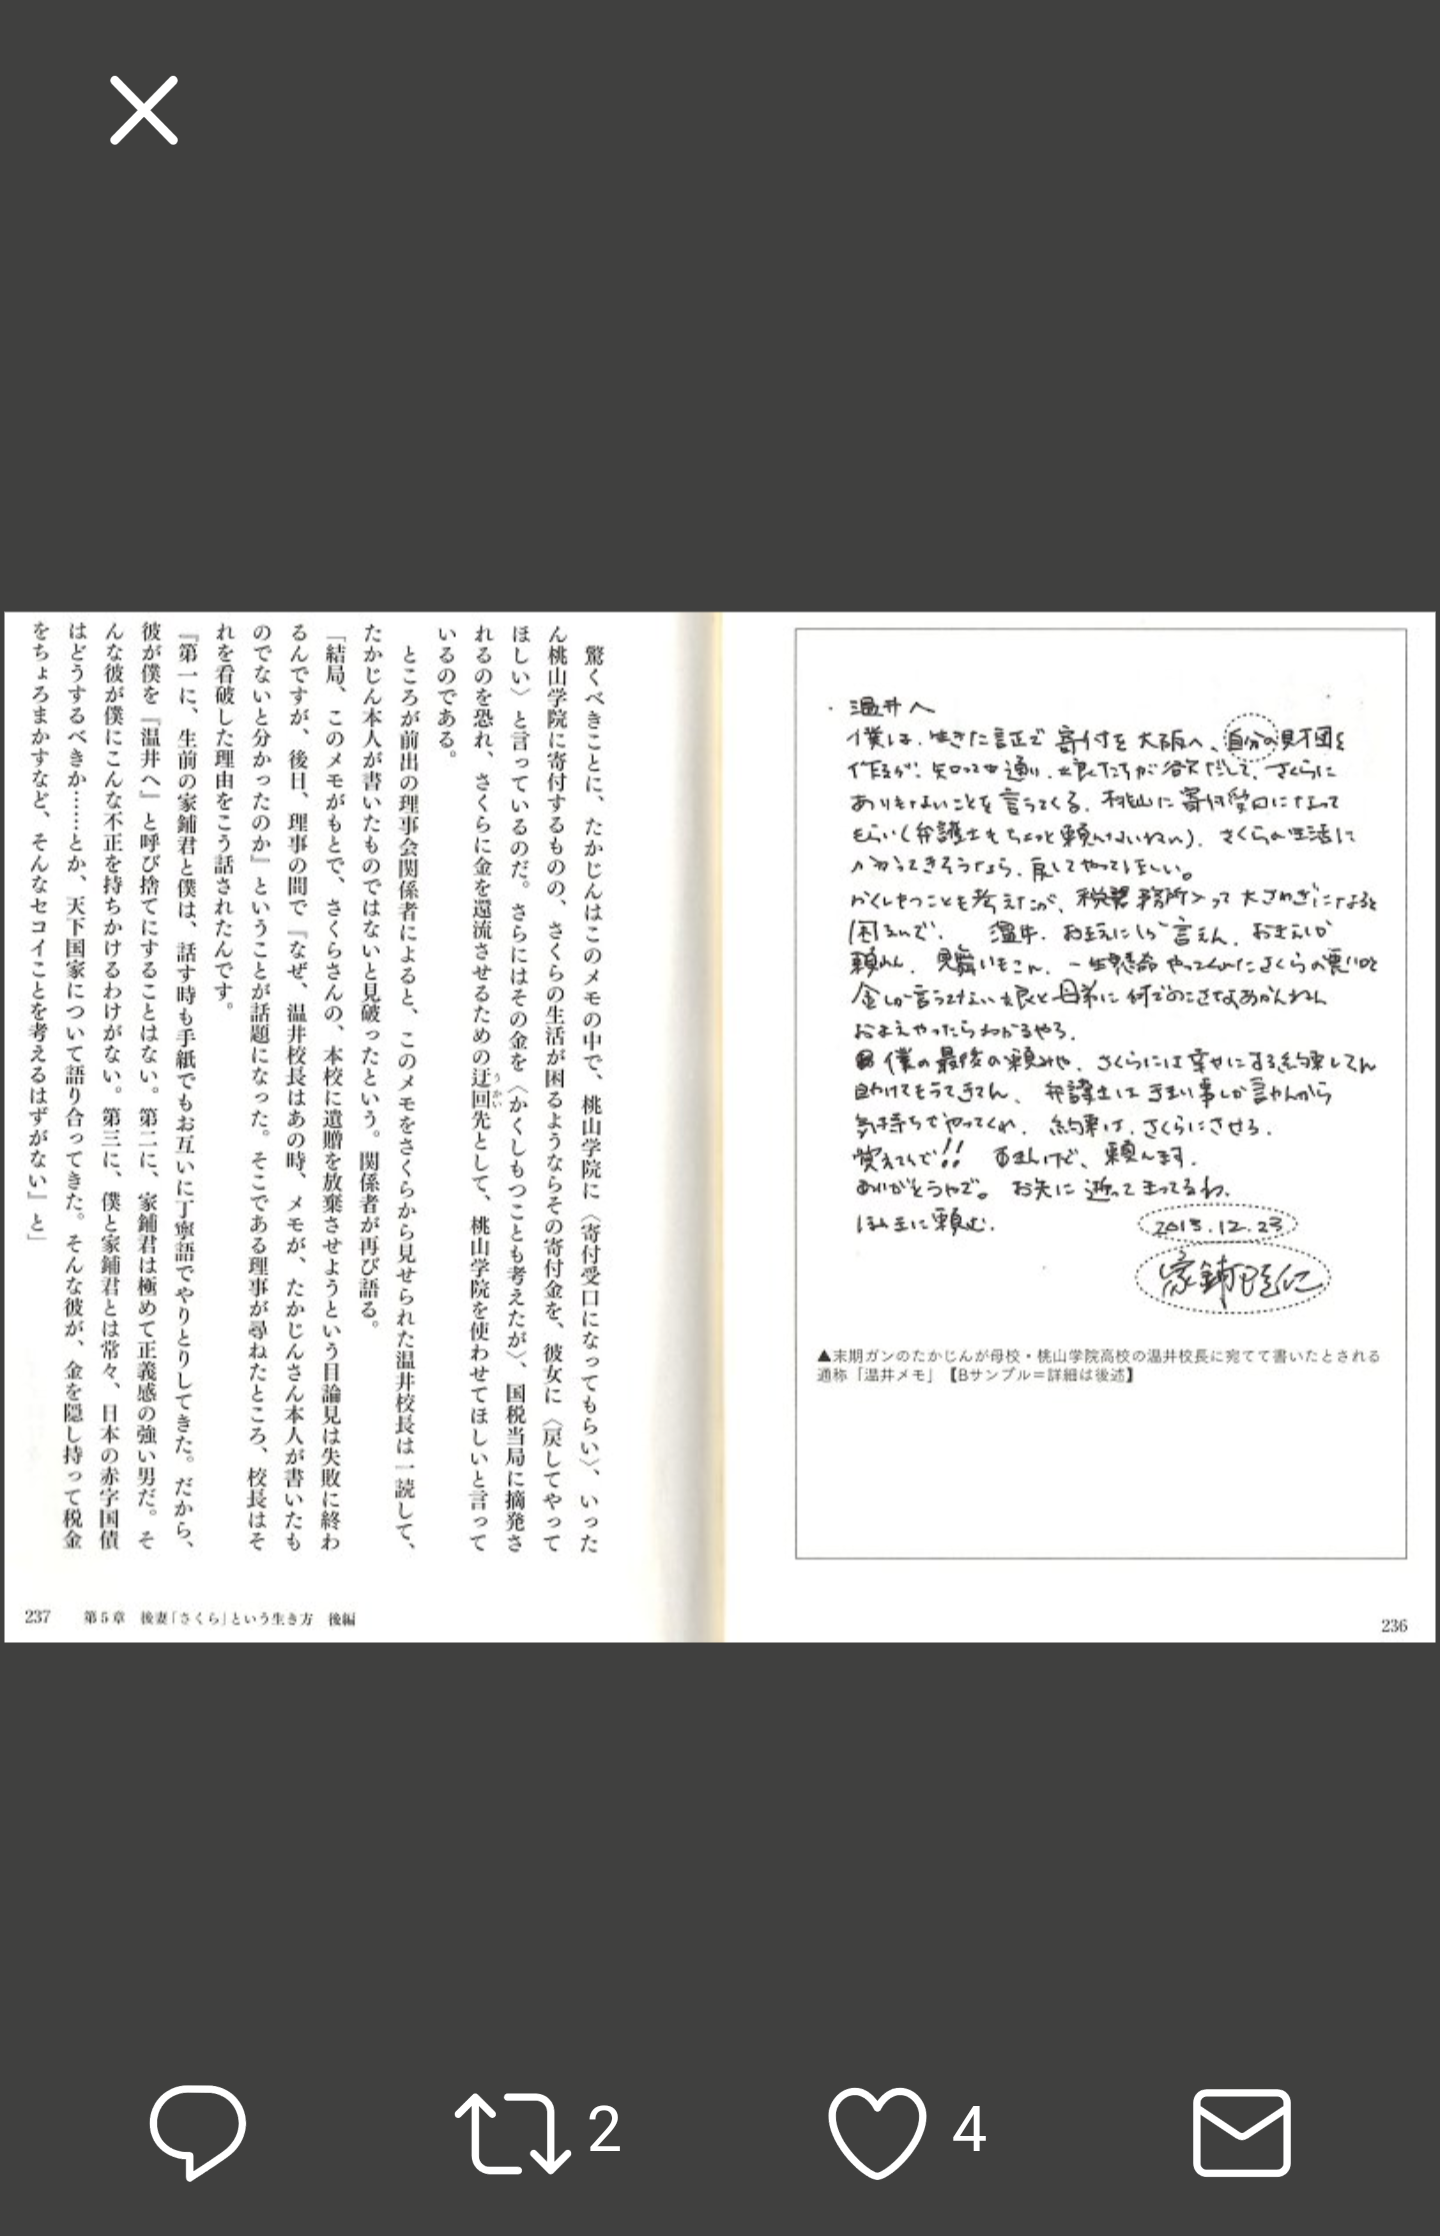 ・温井へ
僕は、生きた証で寄付を大阪へ、自分の財団を
作るが、知っての通り、娘たちが欲だして、さくらに
ありもしないことを言うてくる。桃山に寄付受口になって
もらい(弁護士もちょっと頼んないねん)、さくらの生活に
なってきそうなら、戻してやってほしい。
かくしもつことも考えたが、税務署入って大さわぎになると
困るんで。温井、おまえにしか言えん、おまえしか
頼れん、見舞いもこん、一生懸命やってくれたさくらの悪い口と
金しか言うてない娘と母弟に何でのこさなあかんねん
おまえやったらわかるやろ。
僕の最後の頼みや、さくらには幸せにする約束してん
助けてもうてきてん、弁護士は事しか言わんから
気持ちでやってくれ、約束は、さくらにさせる。
覚えてんで!! 頼んます。
ありがとうやで。お先に逝ってまってるわ。
ほんまに頼む。
2013.12.23
家鋪隆仁
▲末期ガンのたかじんが母校・桃山学院高校の温井校長に宛てて書いたとされる
通称「温井メモ」【Bサンプル＝詳細は後述】
236
驚くべきことに、たかじんはこのメモの中で、桃山学院に〈寄付受口になってもらい〉、いった
ん桃山学院に寄付するものの、さくらの生活が困るようならその寄付金を、彼女に〈戻してやって
ほしい〉と言っているのだ。さらにはその金を〈かくしもつことも考えたが〉、国税当局に摘発さ
れるのを恐れ、さくらに金を還流させるための迂回先として、桃山学院を使わせてほしいと言って
いるのである。
ところが前出の理事会関係者によると、このメモをさくらから見せられた温井校長は一読して、
たかじん本人が書いたものではないと見破ったという。関係者が再び語る。
「結局、このメモがもとで、さくらさんの、本校に遺贈を放棄させようという目論見は失敗に終わ
るんですが、後日、理事の間で『なぜ、温井校長はあの時、メモが、たかじんさん本人が書いたも
のでないと分かったのか』ということが話題になった。そこである理事が尋ねたところ、校長はそ
れを看破した理由をこう話されたんです。
『第一に、生前の家鋪君と僕は、話す時も手紙でもお互いに丁寧語でやりとりしてきた。だから、
彼が僕を『温井へ』と呼び捨てにすることはない。第二に、家鋪君は極めて正義感の強い男だ。そ
んな彼が僕にこんな不正を持ちかけるわけがない。第三に、僕と家鋪君とは常々、日本の赤字国債
はどうするべきか……とか、天下国家について語り合ってきた。そんな彼が、金を隠し持って税金
をちょろまかすなど、そんなセコイことを考えるはずがない』と」
237 第5章 後妻「さくら」という生き方 後編
2
4